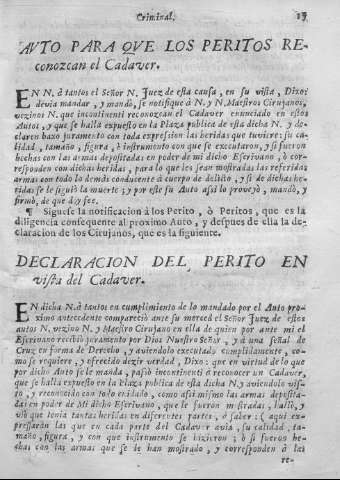 Criminal. 13
AVTO PARA QVE LOS PERITOS RE-
conozcan el Cadaver.
EN N. à tantos el Señor N. Juez de esta causa, en su vista, Dixo:
devia mandar, y mandò, se notifique à N. y N. Maestros Cirujanos,
vezinos N. que incontinenti reconozcan el Cadaver enunciado en estos
Autos, y que se halla expuesto en la Plaza publica de esta dicha N. y de-
claren baxo juramento con toda expression las heridas que tuviere: su ca-
lidad, tamaño, figura, ò instrumento con que se executaron, y si fueron
hechas con las armas depositadas en poder de mi dicho Escrivano, ò cor-
responden con dichas heridas, para lo que les sean mostradas las referidas
armas con todo lo demàs conducente à cuerpo de delito, y si de dichas he-
ridas se le siguiò la muerte; y por este su Auto assi lo proveyò, mandò, y
firmò, de que doy fee.
¶ Siguese la notificacion à los Perito, ò Peritos, que es la
diligencia consequente al proximo Auto, y despues de ella la de-
claracion de los Cirujanos, que es la siguiente.
DECLARACION DEL PERITO EN
vista del Cadaver.
EN dicha N. à tantos en cumplimiento de lo mandado por el Auto pro-
ximo antecedente compareciò ante su merced el Señor Juez de estos
autos N. vezino N. y Maestro Cirujano en ella de quien por ante mi el
Escrivano recibiò juramento por Dios Nuestro Señor, y à una señal de
Cruz en forma de Derecho, y aviendolo executado cumplidamente, co-
mo se requiere, y ofrecido dezir verdad, Dixo: que en virtud de lo que
por dicho Auto se le manda, passò incontinenti à reconocer un Cadaver,
que se halla expuesto en la Plaza publica de esta dicha N. y aviendolo vis-
to, y reconocido con todo cuidado, como assi mismo las armas deposita-
das en poder de Mi dicho Escrivano, que le fueron mostradas, hallò, y
viò que tenia tantas heridas en diferentes partes, à saber: (aqui ex-
pressaràn las que en cada parte del Cadaver avia, su calidad, ta-
maño, figura, y con que instrumento se hizieron; ò si fueron he-
chas con las armas que se le han mostrado, y corresponden à las
re-